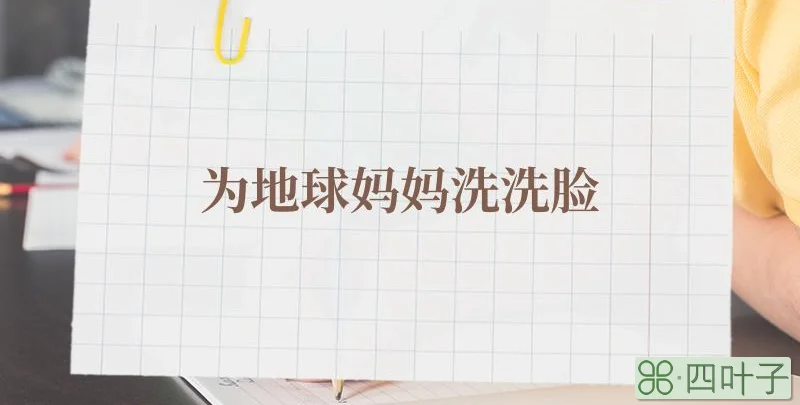 为地球妈妈洗洗脸
四叶子